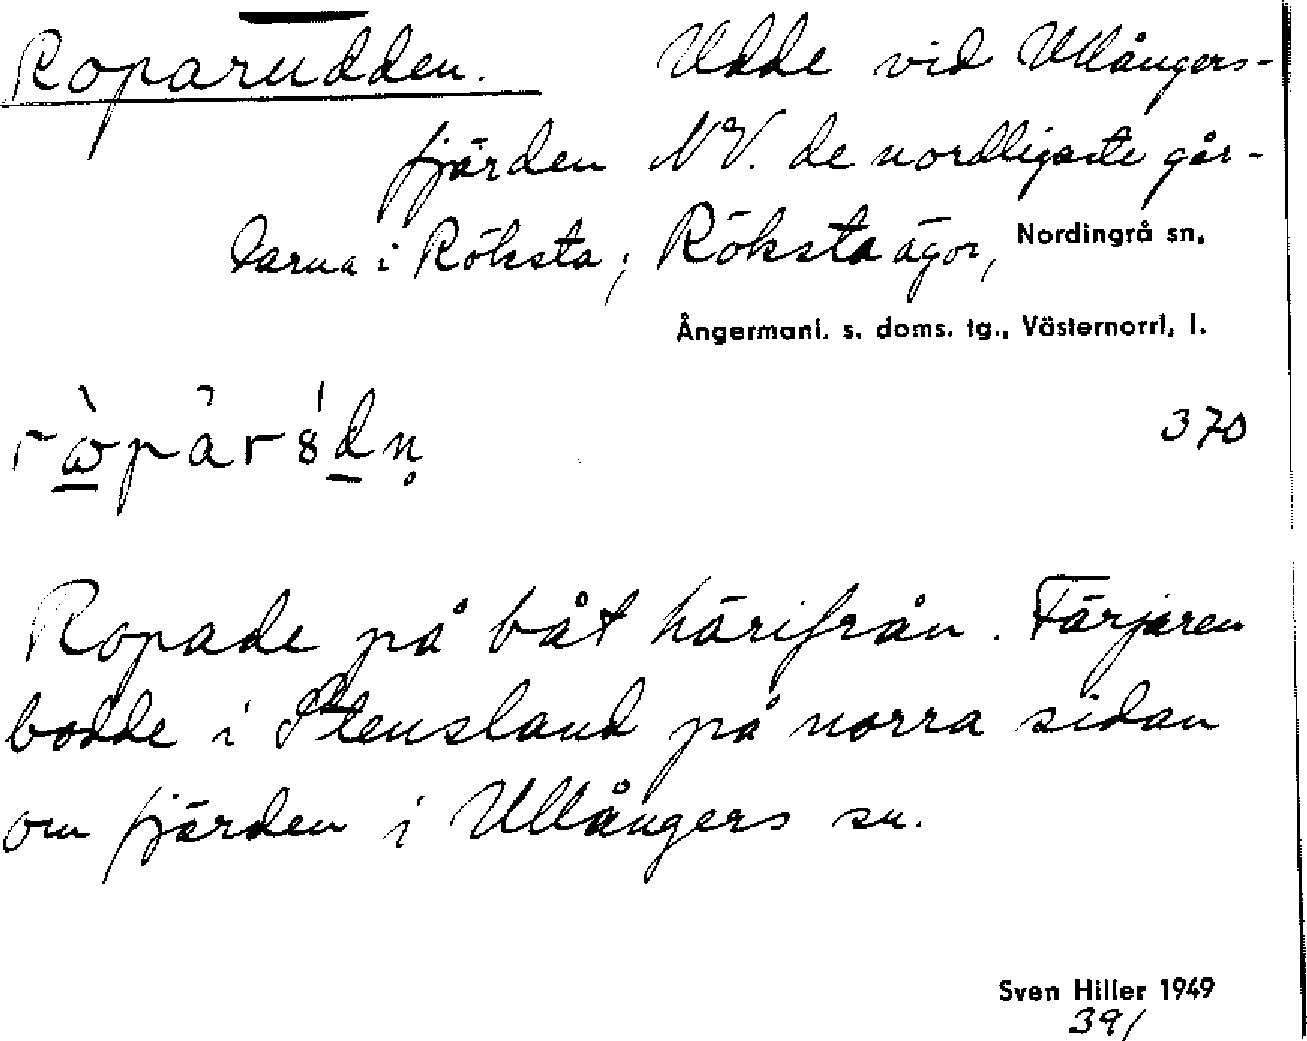 Roparudden. Udde vid Ullångers-
fjärden NV. de nordligaste går-
darna i Röksta; Röksta ägor, Nordingrå sn,
Ångermanl. s. doms. tg., Västernorrl, l.
370
Ropade på båt härifrån. Färjaren
bodde i Stensland på norra sidan
om fjärden i Ullångers sn.
Sven Hiller 1949
391